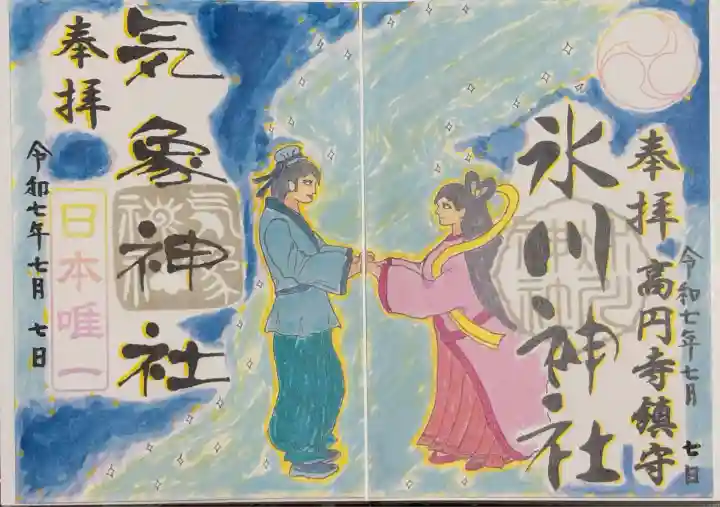 奉拝
高円寺鎮守
氷川神社
令和七年七月七日
奉拝
気象神社
日本唯一
令和七年七月七日